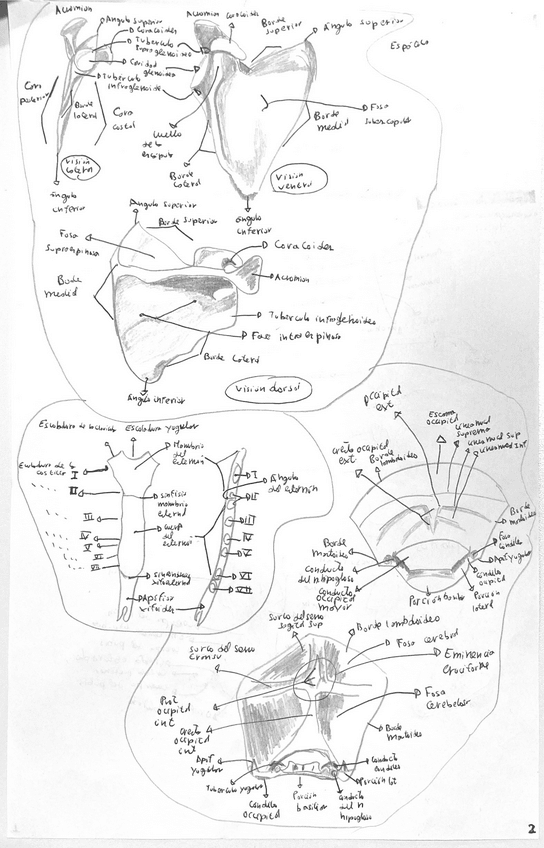 Acromion
Angulo superior
Coracoides
Tuberculo
supraglenoideo
Cavidad
glenoidea
Tuberculo
infraglenoideo
Cara
posterior
Borde
lateral
Cara
costal
Visión
lateral
Angulo
inferior
Acromion
Coracoides
Borde
superior
Ángulo superior
Borde
medial
Fosa
subescapular
Cuello
de la
escápula
Borde
lateral
Visión
ventral
Ángulo
inferior
Angulo superior
Borde superior
Fosa
supraespinosa
Coracoides
Acromion
Borde
medial
Tuberculo infraglenoideo
Fosa infraespinosa
Borde lateral
Ángulo inferior
Visión dorsal
Escotadura yugular
Manubrio
del
esternón
I
II
III
IV
V
VI
VII
Sinfisis
manubrio
esternal
Cuerpo
del
esternon
Apofisis
xifoides
Ángulo
del esternón
I
II
III
IV
V
VI
VII
Occipital
ext
Escama
occipital
Linea nucal
suprema
Linea nucal sup
Linea nucal inf
Cresta occipital
ext
Borde
lambdoideo
Borde
mastoideo
Borde
mastoideo
Conducto
del n hipogloso
Conducto
occipital
mayor
Fosa
condilea
Apof yugular
Condilo
occipital
Porción
lateral
Porción basilar
Surco del seno
sagital sup
Borde lambdoideo
Fosa cerebral
Eminencia
cruciforme
Surco del seno
Prot
occipital
int
Cresta
occipital
int
Fosa
cerebelosa
Borde
mastoideo
Apof
yugular
Tuberculo yugular
Condilo
occipital
Porción
basilar
Conducto
del n
hipogloso
Porción lat
Conducto
condileo
2